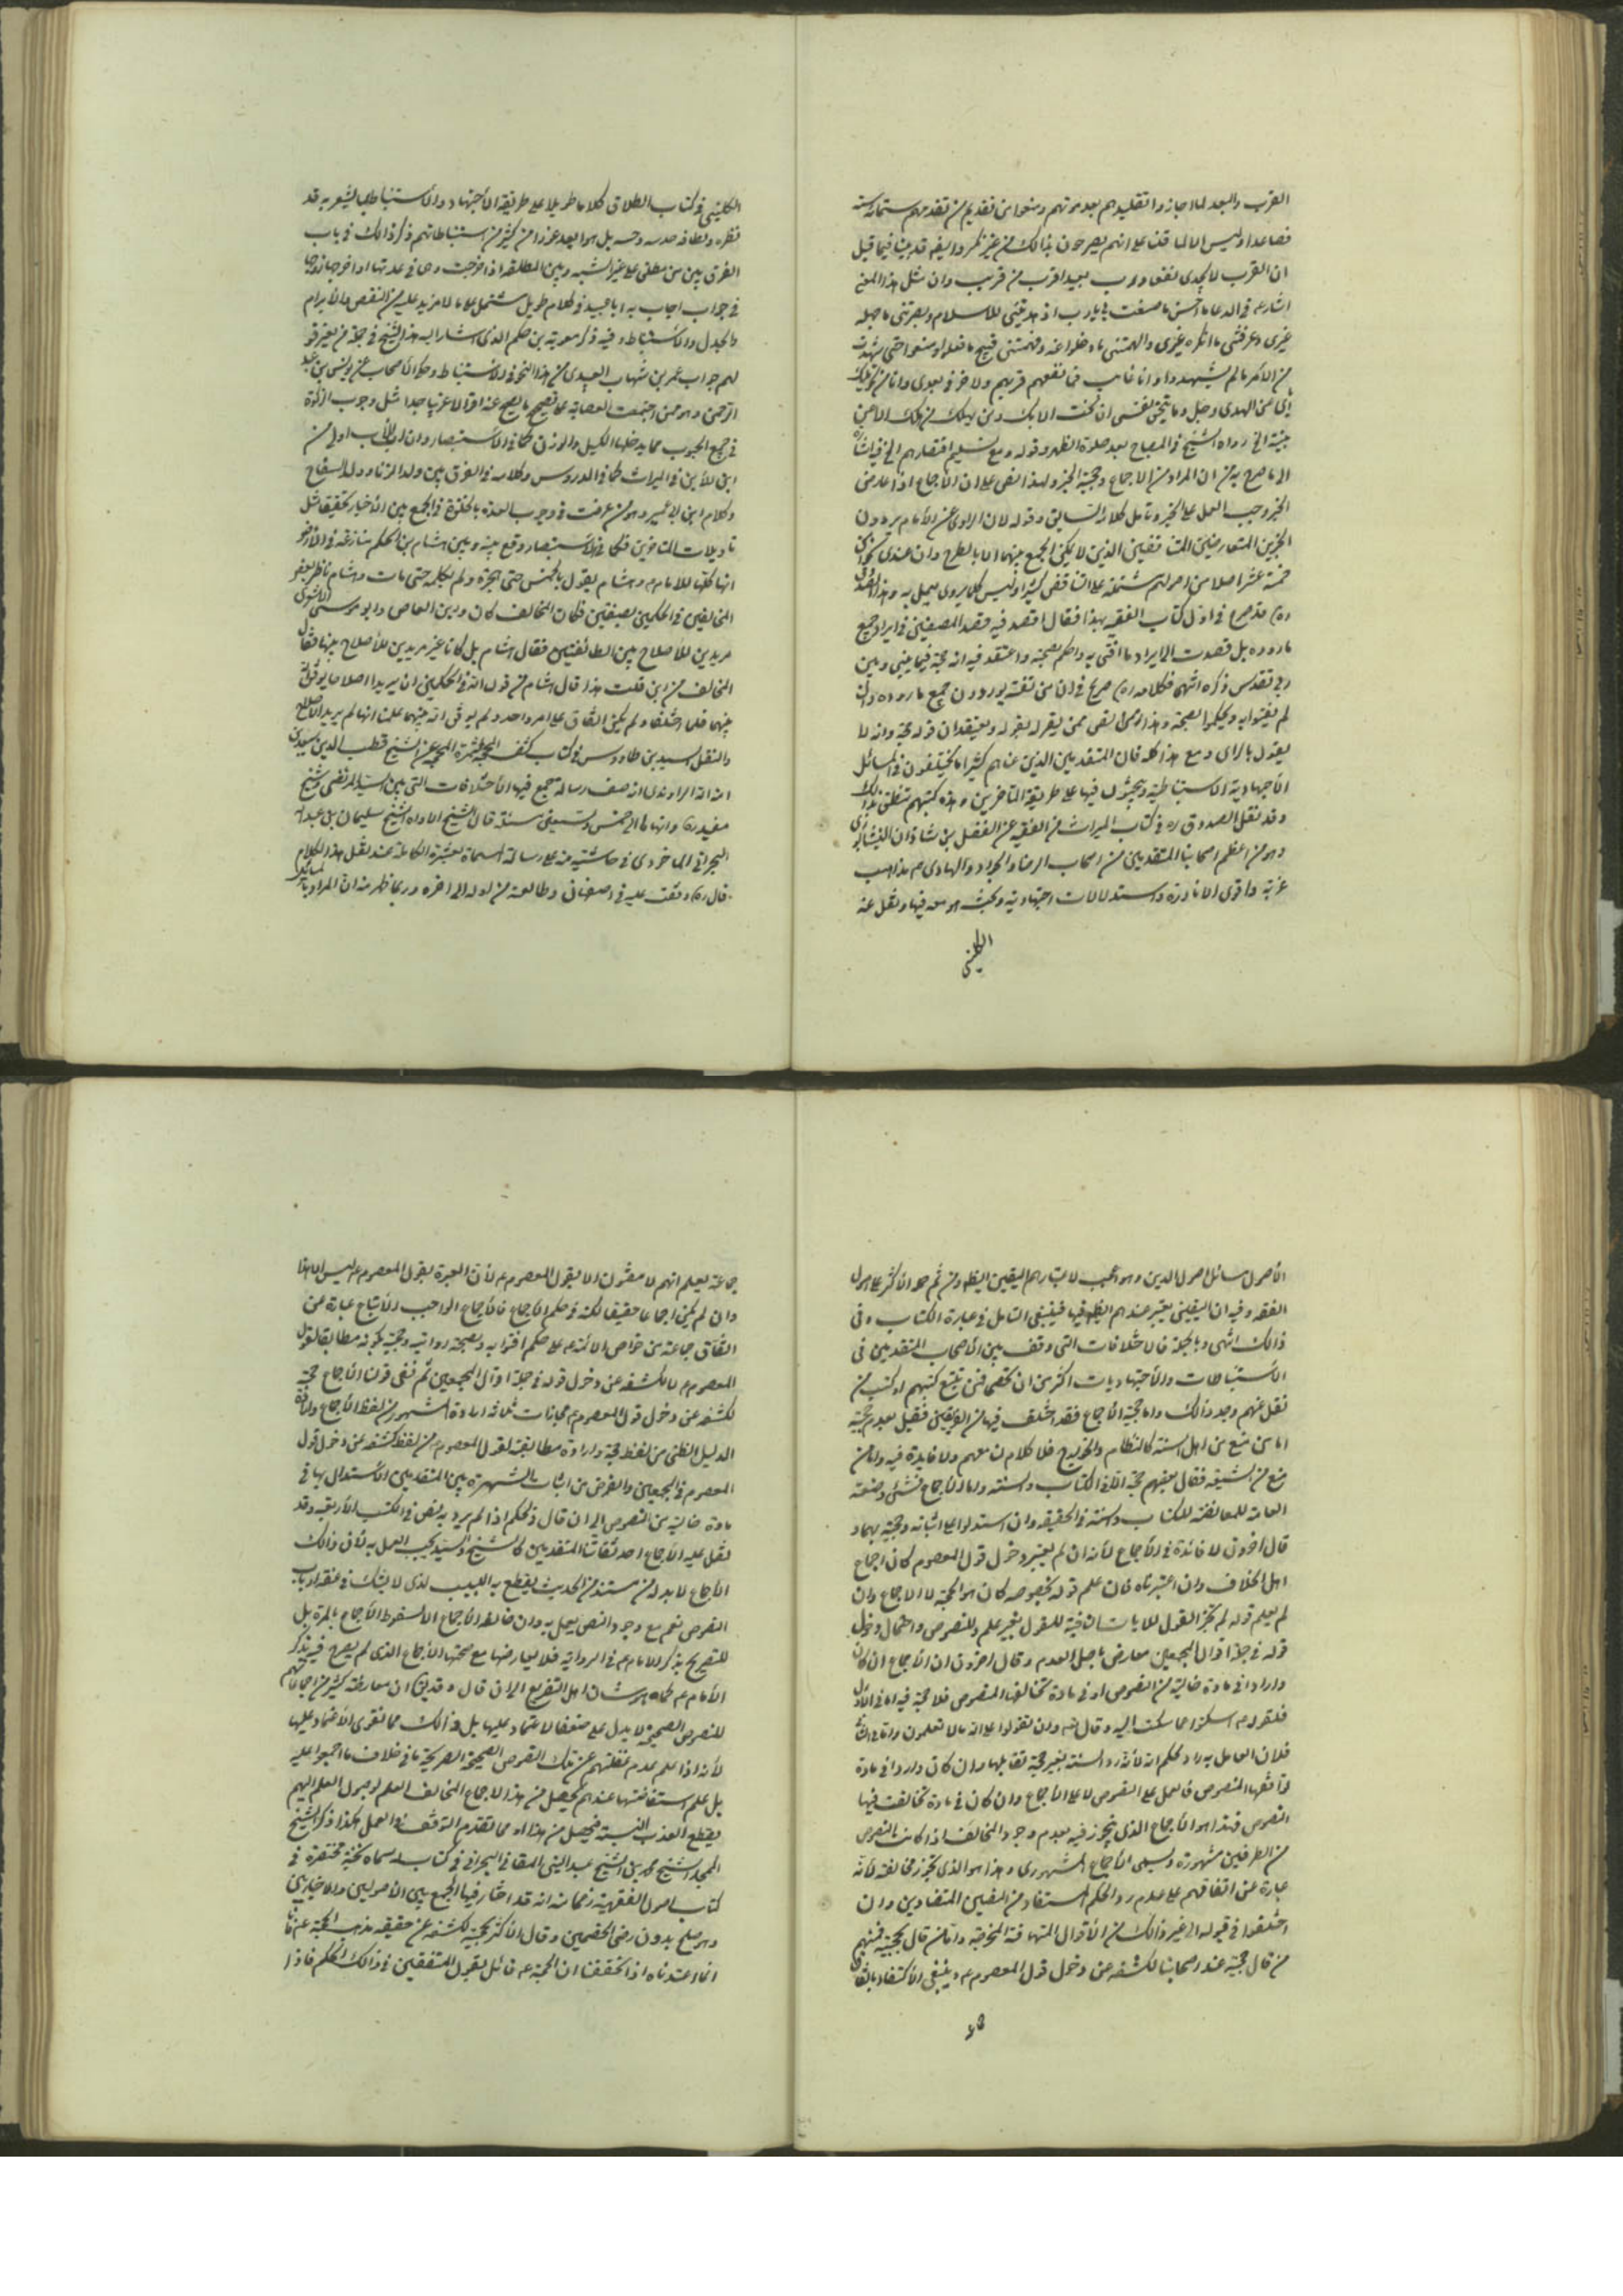 القرب والبعد لما اجازوا تقليدهم بعد موتهم ومنعوا من تقديم من تقدمهم ستمائة سنة
فصاعدا وليس الا لما قلنا على انهم يصرحون بذالك من غير نكر وايضا قد بينا فيما قيل
ان القرب لا يجدى نفعا ورب بعيد اقرب من قريب وان مثل هذا المعنى
اشار فى الدعاء ما احسن ما صنعت بى يارب اذ هديتنى للاسلام وبصرتنى ما جهله
غيرى وعرفتنى ما انكره غيرى والهمتنى ما ذهلوا عنه وفهمتنى قبيح ما فعلوا وصنعوا حتى شهدت
من الامر ما لم يشهدوا وانا غائب فما نفعهم قربهم ولا ضرنى بعدى وانا من تحويلك
اياى عن الهدى وجل وما تنجو نفسى ان نجت الا بك ولن يهلك من هلك الا عن
بينة الخ رواه الشيخ فى المصباح بعد صلوة الظهر وقوله ومع تسليم اقتصارهم الخ فيه اشارة
الى ما صرح به من ان المراد من الاجماع وحجية الخبر ولهذا نص على ان الاجماع اذا عارض
الخبر وجب العمل على الخبر وتأمل كلامه السابق وقوله لان الراوى عن الامام يردون
الخبرين المتعارضين المتناقضين الذين لا يمكن الجمع بينهما الا بالطرح وان عندى نحوا من
خمسة عشر اصلا من اصولهم مشتملة على التناقض كثيرا وليس كلما يروى يعمل به وهذا الصدوق
ره قد صرح فى اول كتاب الفقيه بهذا فقال اقصد فيه قصد المصنفين فى ايراد جميع
ما رووه بل قصدت الى ايراد ما افتى به واحكم بصحته واعتقد فيه انه حجة فيما بينى وبين
ربى تقدس ذكره انتهى فكلامه ره صريح فى ان من تقدمه يوردون جميع ما رووه وان
لم يفتوا به ويحكموا بصحته
يقول بالراى ومع هذا كله فان المتقدمين الذين عناهم كثيرا ما يختلفون فى المسائل
الاجتهادية الاستنباطية ويبحثون فيها على طريقة المتاخرين وهذه كتبهم تنطق بذالك
وقد نقل الصدوق ره فى كتاب الميراث من الفقيه عن الفضل بن شاذان النيشابورى
وهو من اعظم اصحابنا المتقدمين من اصحاب الرضا والجواد والهادى ع مذاهب
غريبة واقوى الا نادرة واستدلالات اجتهادية وبحث هو معه فيها ونقل عنه
الكلينى
الكلينى فى كتاب الطلاق كلاما طويلا على طريقة الاجتهاد والاستنباط
نظره ولطافة حدسه وحسه بل هو ابعد غورا من كثير من استنباطاتهم ذكر ذالك فى باب
الفرق بين من طلق على غير السنة وبين المطلقة اذا خرجت وهى فى عدتها او اخرجها زوجها
فى جواب اجاب به ابا عبيد فى كلام طويل مشتمل على ما لا مزيد عليه من النقض والابرام
والجدل والاستنباط وفيه ذكر معوية بن حكيم الذى اشار اليه هذا الشيخ فى جملة من يعزو
لهم جواب عمر بن شهاب العبدى من هذا النحو فى الاستنباط وحكوا الاصحاب عن يونس بن عبد
الرحمن وهو ممن اجتمعت العصابة على تصحيح ما يصح عنه اقوالا غريبا جدا مثل وجوب الزكوة
فى جميع الحبوب مما يدخلها الكيل والوزن كما فى الاستبصار وان ابن الاب اولى من
ابن الابن فى الميراث كما فى الدروس وكلامه فى الفرق بين ولد الزنا وولد السفاح
وكلام ابن ابى عمير وهو من عرفت فى وجوب العدة بالخلوة فى الجمع بين الاخبار تحقيقا مثل
تاويلات المتاخرين فكما فى الاستبصار وقع بينه وبين هشام بن الحكم منازعة فى الارض
انها كلها للامام ع وهشام يقول بالخمس حتى هجره ولم يكلمه حتى مات وهشام ناظر بعض
المخالفين فى الحكمين بصفين فكان المخالف كان عمرو بن العاص وابو موسى الاشعرى
مريدين للاصلاح بين الطائفتين فقال هشام بل كانا غير مريدين للاصلاح بينها فقال
المخالف من اين قلت هذا قال هشام من قول الله فى الحكمين ان يريدا اصلاحا يوفق الله
بينهما فلما اختلفا ولم يكن اتفاق على امر واحد ولم يوفق الله بينهما علمنا انهما لم يريدا الاصلاح
والنقل السيد بن طاووس فى كتاب كشف المحجة لثمرة المهجة عن الشيخ قطب الدين سعيد بن
هبة الله الراوندى انه صنف رسالة جمع فيها الاختلافات التى بين السيد المرتضى وشيخ
مفيد ره وانهاها الى خمس وتسعين مسئلة قال الشيخ الاواه الشيخ سليمان بن عبد الله
البحرانى الماحوزى فى حاشيته منه على رسالته المسماة بعشرة الكاملة عند نقل هذا الكلام
قال ره وقفت عليه فى اصفهان وطالعته من اوله الى اخره وربما ظهر منه ان المراد بالمسائل
الاصول مسائل اصول الدين وهو عجيب لاعتبارهم اليقين ايضا ومن ثم حمله الاكثر على اصول
الفقه وفيه ان اليقينى يعتبر عندهم ايضا فيها فينبغى التامل فى عبارة الكتاب وفى
ذالك انتهى وبالجملة فالاختلافات التى وقعت بين الاصحاب المتقدمين فى
الاستنباطات والاجتهاديات اكثر من ان تحصى فمن تتبع كتبهم او كتب من
نقل عنهم وجد ذالك واما حجية الاجماع فقد اختلف فيها من الفريقين فقيل بعدم حجيته
اما من منع من اهل السنة كالنظام والخوارج فلا كلام لنا معهم ولا فايدة فيه واما من
منع من الشيعة فقال بعضهم حجة الله فى الكتاب والسنة واما الاجماع فشئ وضعته
العامة للمخالفته للكتاب والسنة فى الحقيقة وان استدلوا على اثباته وحجيته بهما و
قال اخرون لا فائدة فى الاجماع لانه ان لم يعتبر دخول قول المعصوم كان اجماع
اهل الخلاف وان اعتبرناه فان علم قوله بخصوصه كان هو الحجة لا الاجماع وان
لم يعلم قوله لم يجز القول للايات النافية للقول بغير علم وللنصوص واحتمال دخول
قوله فى جملة اقوال المجمعين معارض باصل العدم وقال اخرون ان الاجماع ان كان
واردا فى مادة خالية من النصوص او فى مادة تخالفها النصوص فلا حجة فيه اما فى الاول
فلقوله ع اسكتوا عما سكت الله وقال الله وان تقولوا على الله ما لا تعلمون واما فى الثانى
فلان العامل به راد لحكم الله لانه رد السنة بغير حجة تقابلها وان كان واردا فى مادة
توافقها النصوص فالعمل على النصوص لا على الاجماع وان كان فى مادة تخالفت فيها
النصوص فهذا هو الاجماع الذى يجوز فيه بعدم وجود المخالف اذا كانت النصوص
من الطرفين مشهورة ويسمى الاجماع المشهورى وهذا هو الذى يجوز مخالفته لانه
عبارة عن اتفاقهم على عدم رد الحكم المستفاد من النصين المتضادين وان
اختلفوا فى قبوله الى غير ذالك من الاقوال المتهافتة المزخرفة واما من قال بحجيته فمنهم
من قال حجيته عند اصحابنا لكشفه عن دخول قول المعصوم ع وينبغى الاكتفاء باتفاق
جماعة يعلم انهم لا يفتون الا بقول المعصوم ع لان العبرة بقول المعصوم ع ليس الا هذا
وان لم يكن اجماعا حقيقيا لكنه فى حكم الاجماع فالاجماع الواجب الاتباع عبارة عن
اتفاق جماعة من خواص الائمة ع على حكم افتوا به وبصحة رواية وحجية بكونه مطابقا لقول
المعصوم ع لا لكشفه عن دخول قوله فى جملة اقوال المجمعين ثم ففى قولنا الاجماع حجة
لكشفه عن دخول قول المعصوم ع مجازات ثلثة ارادة المشهور من لفظ الاجماع وارادة
الدليل الظنى من لفظ حجة وارادة مطابقته لقول المعصوم من لفظ كشفه عن دخول قول
المعصوم فى المجمعين والغرض من اثبات الشهرة بين المتقدمين الاستدلال بها فى
مادة خالية من النصوص الى ان قال والحكم اذا لم يرد به نص فى الكتب الاربعة وقد
نقل عليه الاجماع احد ثقاتنا المتقدمين كالشيخ والسيد يجب العمل به لان ذالك
الاجماع لا بد له من مستند من الحديث يقطع به اللبيب لدى لا يشك فى عنقه ارباب
النصوص نعم مع وجود النص يعمل به وان خالفه الاجماع الا لسقوط الاجماع بالمرة بل
للتصريح بذكر الامام ع فى الرواية فلا يعارضها مع صحتها الاجماع الذى لم يصرح فيه بذكر
الامام ع كما هو شان اهل التفريع الى ان قال وقد يق ان معارضة كثير من اجماعاتهم
للنصوص الصحيحة لا يدل على ضعف الاعتماد عليها بل ذالك مما تقوى الاعتماد عليها
لانه اذا علم عدم غفلتهم عن تلك النصوص الصحيحة الصريحة فى خلاف ما اجمعوا عليه
بل علم استفاضتها عندهم يحصل من هذا الاجماع المخالف العلم لوصول العلم اليهم
بقطع العذر
المحمد الشيخ محمد بن الشيخ عبد النبى المقابى البحرانى فى كتاب اسماه نخبة مختصرة فى
كتاب اصول الفقهية زعما منه انه قد اختار فيها الجمع بين الاصوليين والاخباريين
وهو صلح بدون رضى الخصمين وقال الاكثر بحجيته لكشفه عن حقيقة مذهب الحجة ع فانا
انما اعتمدناه اذا تحققنا ان الحجة ع قائل بقول المتفقين فى ذالك الحكم فاذا